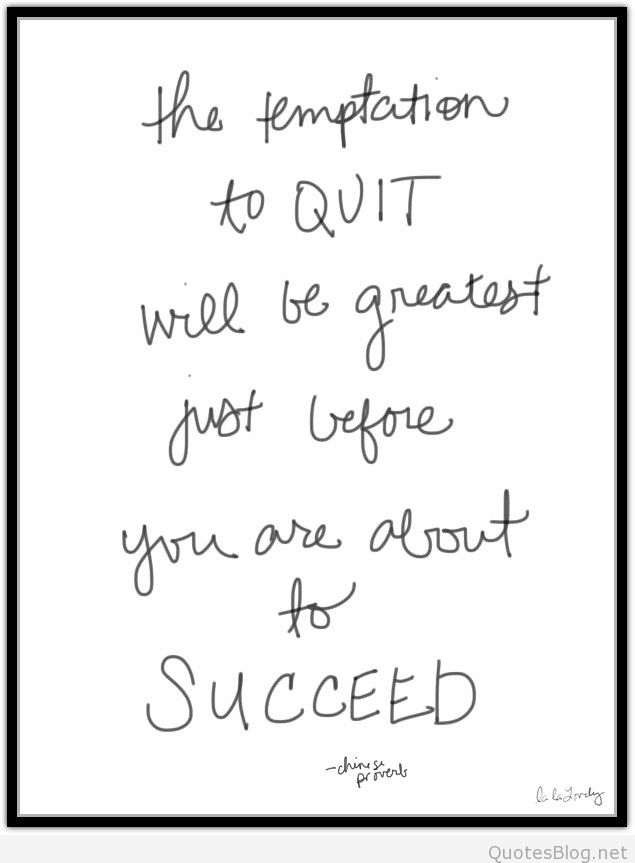 the temptation
to QUIT
will be greatest
just before
you are about
to
SUCCEED
-chinese
proverb
lalaLovely
QuotesBlog.net